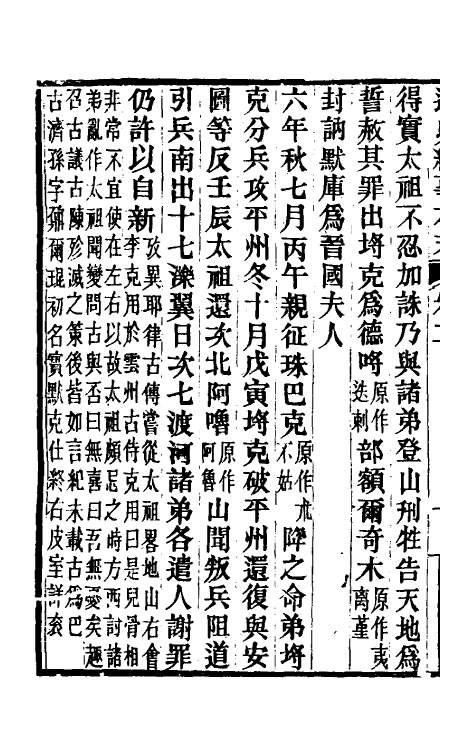 得實太祖不忍加誅乃與諸弟登山刑牲告天地爲
誓赦其罪出埓克爲德哷原作迭剌部額爾奇木原作夷离堇
封訥默庫爲晉國夫人
六年秋七月丙午親征珠巴克原作朮不姑降之命弟埓
克分兵攻平州冬十月戊寅埓克破平州還復與安
圖等反壬辰太祖還次北阿嚕原作阿魯山聞叛兵阻道
引兵南出十七濼翼日次七渡河諸弟各遣人謝罪
仍許以自新攷異耶律古傳嘗從太祖畧地山右會
李克用於雲州古侍克用曰是兒骨相
非常不宜使在左右以故太祖頗忌之時方西討諸
弟亂作太祖聞變問古與否曰無喜曰吾無憂矣趣
召古議古陳殄滅之策後皆如言紀未載古爲巴
古濟孫字鼐爾琨初名霣默克仕終右皮室詳衮